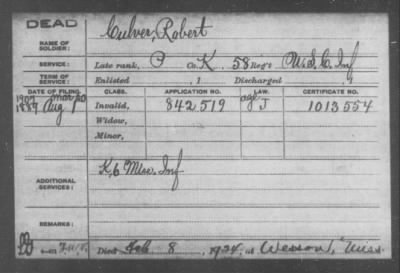 DEAD
Culver, Robert
NAME OF SOLDIER:
SERVICE: Late rank, P Co. K, 58 Reg't U.S.C. Inf
TERM OF SERVICE: Enlisted , 1 Discharged , 1
DATE OF FILING. CLASS. APPLICATION NO. LAW. CERTIFICATE NO.
1907 Mar 20
1889 Aug 1 Invalid, 842519 J 1013554
Widow,
Minor,
ADDITIONAL SERVICES: K, 6 Miss. Inf
REMARKS:
Died Feb 8, 1924, at Wesson, Miss.